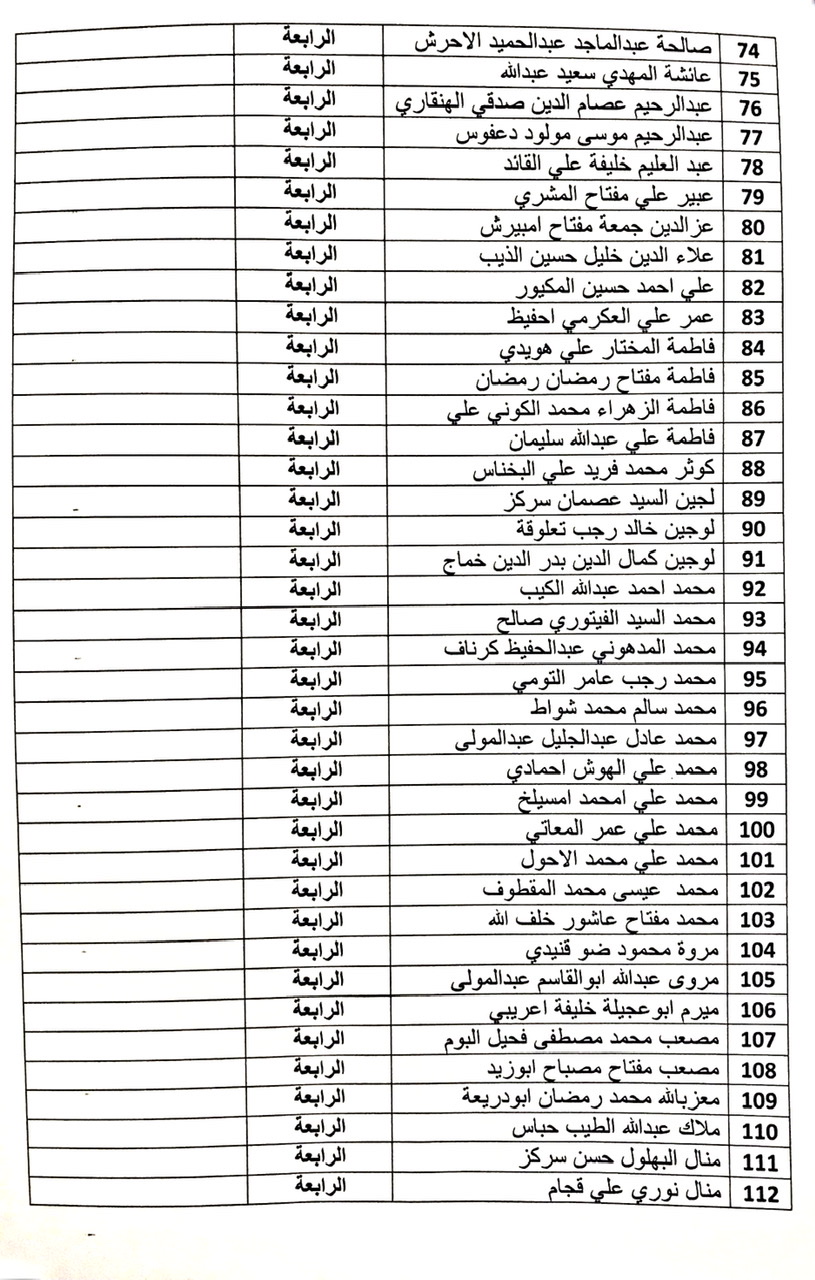 74 صالحة عبدالماجد عبدالحميد الاحرش الرابعة
75 عائشة المهدي سعيد عبدالله الرابعة
76 عبدالرحيم عصام الدين صدقي الهنقاري الرابعة
77 عبدالرحيم موسى مولود دعفوس الرابعة
78 عبد العليم خليفة علي القائد الرابعة
79 عبير علي مفتاح المشري الرابعة
80 عزالدين جمعة مفتاح امبيرش الرابعة
81 علاء الدين خليل حسين الذيب الرابعة
82 علي احمد حسين المكيور الرابعة
83 عمر علي العكرمي احفيظ الرابعة
84 فاطمة المختار علي هويدي الرابعة
85 فاطمة مفتاح رمضان رمضان الرابعة
86 فاطمة الزهراء محمد الكوني علي الرابعة
87 فاطمة علي عبدالله سليمان الرابعة
88 كوثر محمد فريد علي البخناس الرابعة
89 لجين السيد عصمان سركز الرابعة
90 لوجين خالد رجب تعلوقة الرابعة
91 لوجين كمال الدين بدر الدين خماج الرابعة
92 محمد احمد عبدالله الكيب الرابعة
93 محمد السيد الفيتوري صالح الرابعة
94 محمد المدهوني عبدالحفيظ كرناف الرابعة
95 محمد رجب عامر التومي الرابعة
96 محمد سالم محمد شواط الرابعة
97 محمد عادل عبدالجليل عبدالمولى الرابعة
98 محمد علي الهوش احمادي الرابعة
99 محمد علي امحمد امسيلخ الرابعة
100 محمد علي عمر المعاتي الرابعة
101 محمد علي محمد الاحول الرابعة
102 محمد عيسى محمد المقطوف الرابعة
103 محمد مفتاح عاشور خلف الله الرابعة
104 مروة محمود ضو قنيدي الرابعة
105 مروى عبدالله ابوالقاسم عبدالمولى الرابعة
106 ميرم ابوعجيلة خليفة اعريبي الرابعة
107 مصعب محمد مصطفى فحيل البوم الرابعة
108 مصعب مفتاح مصباح ابوزيد الرابعة
109 معزبالله محمد رمضان ابودريعة الرابعة
110 ملاك عبدالله الطيب حباس الرابعة
111 منال البهلول حسن سركز الرابعة
112 منال نوري علي قجام الرابعة